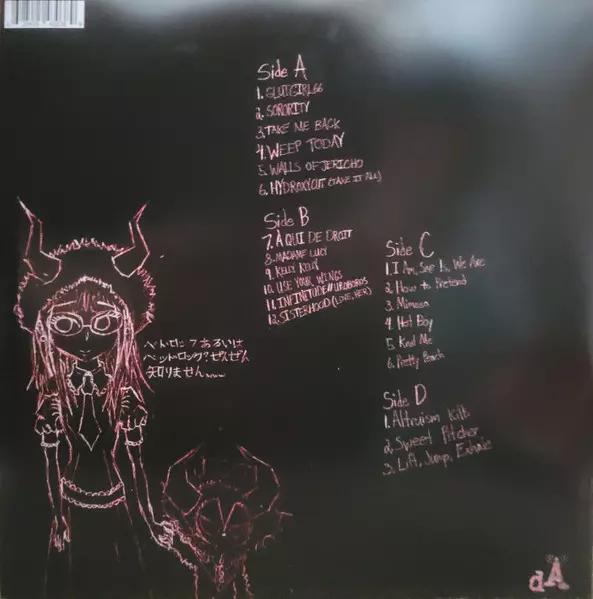 Side A
1. SLUTGIRL66
2. SORORITY
3. TAKE ME BACK
4. WEEP TODAY
5. WALLS OF JERICHO
6. HYDROXYCUT (TAKE IT ALL)
Side B
7. A QUI DE DROIT
8. MADAME LUCY
9. KELLY KELLY
10. USE YOUR WINGS
11. INFINITUDE//UROBOROS
12. SISTERHOOD (LOVE, HER)
Side C
1. I Am, She Is, We Are
2. How to Pretend
3. Mimosa
4. Hot Boy
5. Kind Me
6. Pretty Beach
Side D
1. Altruism Kills
2. Sweet Pitcher
3. Lift, Jump, Exhale
あるいは
ベットロック?ぜんぜん
知りません
dA